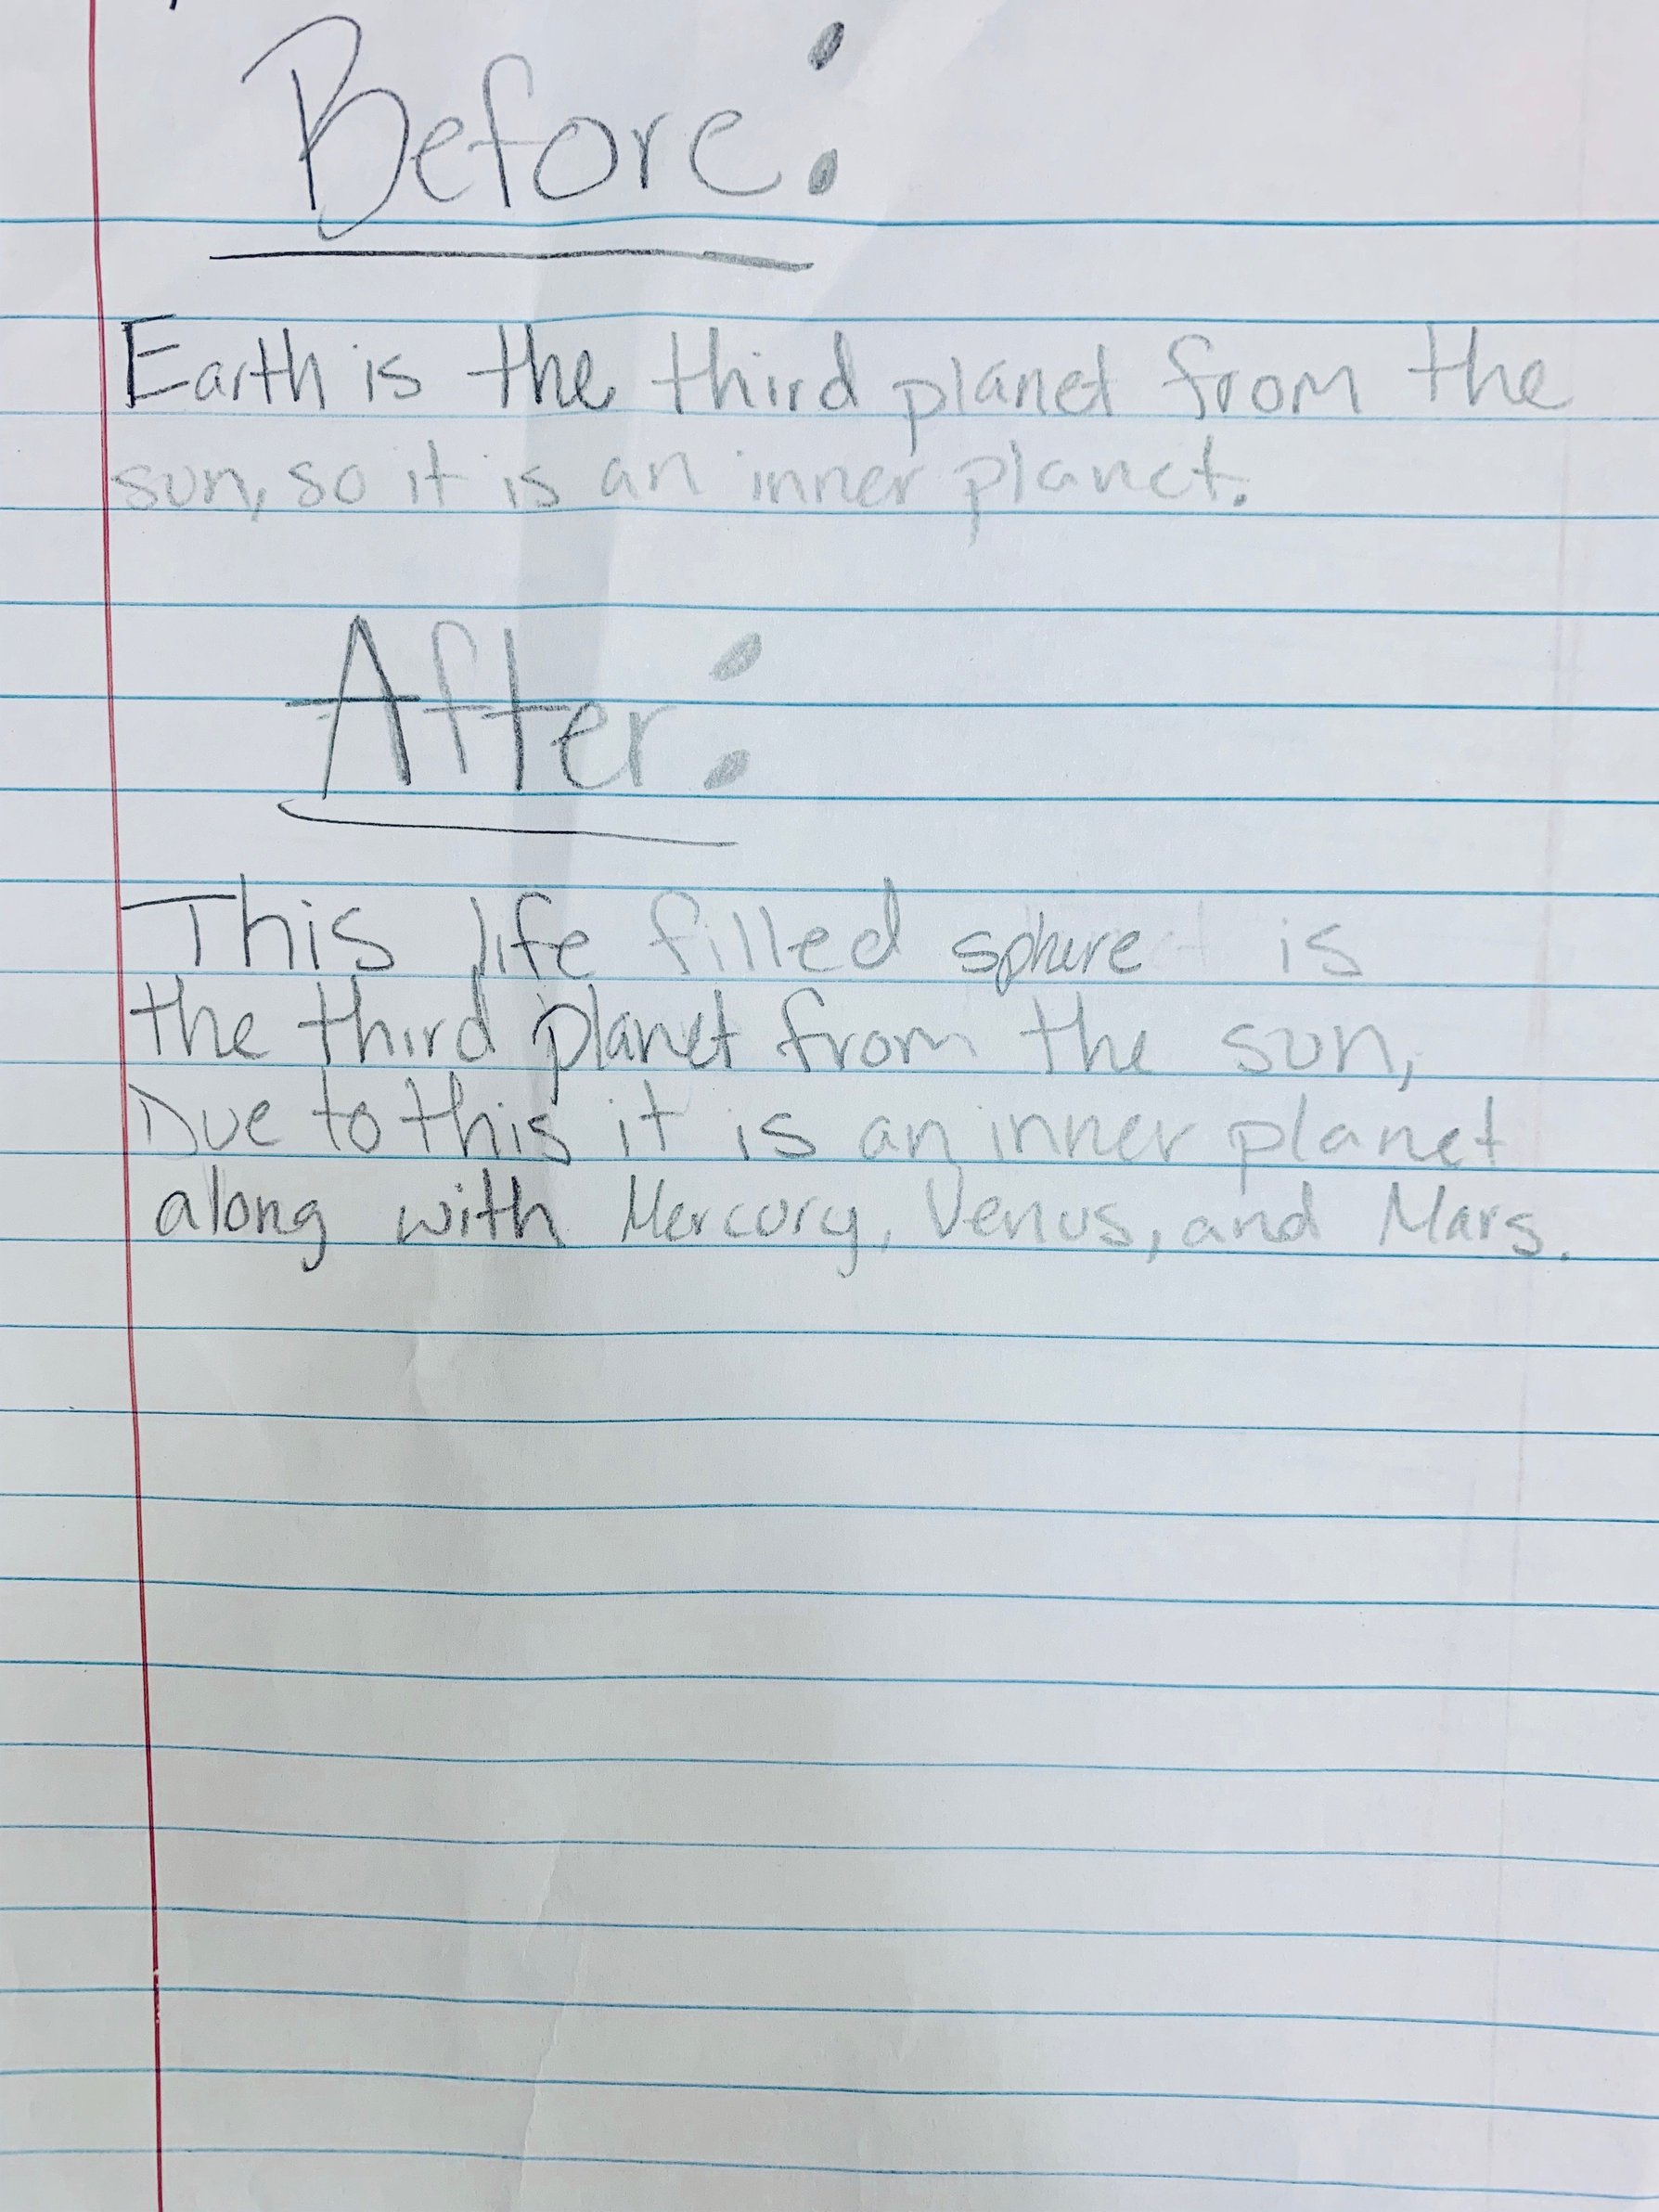 Before:
Earth is the third planet from the
sun, so it is an inner planet.
After:
This life filled sphere is
the third planet from the sun,
Due to this it is an inner planet
along with Mercury, Venus, and Mars.